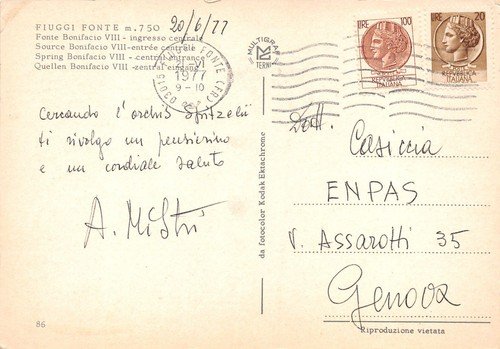 FIUGGI FONTE m. 750
Fonte Bonifacio VIII - ingresso centrale
Source Bonifacio VIII - entrée centrale
Spring Bonifacio VIII - central entrance
Quellen Bonifacio VIII - zentral eingang
20/6/77
03015 FIUGGI FONTE (FR)
VI
1977
9-10
MULTIGRAF
TERNI
LIRE 100
LIRE 20
ITALIANA
ITALIANA
Cercando l'orchis spitzelii
ti rivolgo un pensierino
e un cordiale saluto
A. Mistri
da fotocolor Kodak Ektachrome
Dott. Casiccia
ENPAS
V. Assarotti 35
Genova
86
Riproduzione vietata